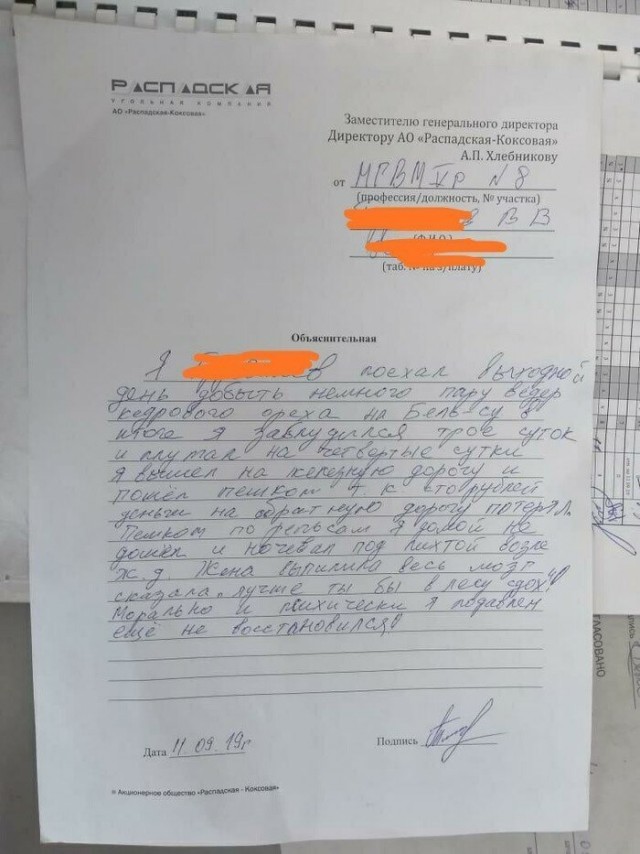 РАСПАДСКАЯ
УГОЛЬНАЯ КОМПАНИЯ
АО «Распадская-Коксовая»
Заместителю генерального директора
Директору АО «Распадская-Коксовая»
А.П. Хлебникову
от МГВМ Vр N 8
(профессия/должность, № участка)
В В
(Ф.И.О.)
(таб. № на з/плату)
Объяснительная
Я поехал выходной
день добыть немного пару ведер
кедрового ореха на Бель-су в
итоге я заблудился трое суток
и плутал на четвертые сутки
я вышел на железную дорогу и
пошёл пешком т.к сто рублей
деньги на обратную дорогу потерял.
Пешком по рельсам я домой не
дошёл и ночевал под пихтой возле
ж.д. Жена выпилила весь мозг
сказала „лучше ты бы в лесу сдох"!
Морально и психически я подавлен
ещё не восстановился!
Дата 11.09.19г
Подпись
Акционерное общество «Распадская - Коксовая»
СОГЛАСОВАНО